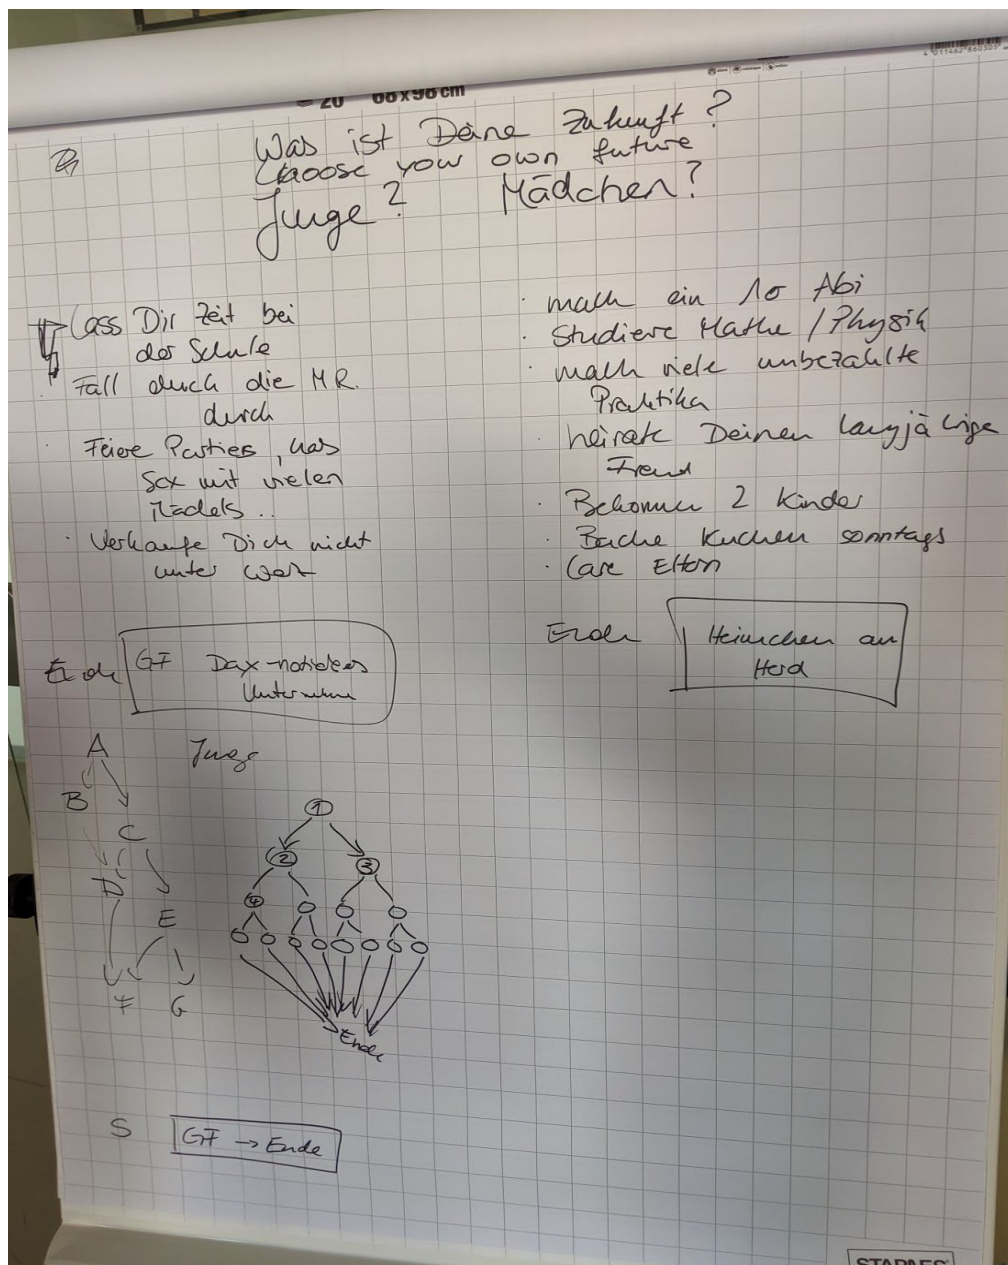 = 20 68x98cm
4 011462 860305
Was ist Deine Zukunft?
Choose your own future
Junge? Mädchen?
Lass Dir Zeit bei
der Schule
Fall durch die M.R.
durch
Feiere Parties, has
Sex mit vielen
Mädels..
Verkaufe Dich nicht
unter Wert
Ende
GF Dax-notiertes
Unternehme
· mach ein 1o Abi
· Studiere Mathe / Physik
· mach viele unbezahlte
Praktika
· heirate Deinen langjährige
Freund
· Bekomme 2 Kinder
· Backe Kuchen sonntags
· Care Eltern
Ende
Heimchen an
Herd
A
B
C
D
E
F G
Junge
1
2 3
4
Ende
S
GF → Ende
STAPLES